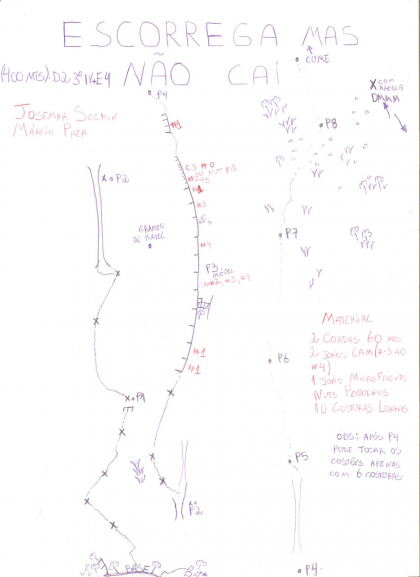 ESCORREGA MAS
NÃO CAI
(400 MTS) D2 3º IV E4
JOSEMAR SECHIN
MÁRCIO PREA
CUME
X COM
ARGOLA
P4
#1
P8
C3 #0
#1
P2
#3
GRAMPO
DE RAPEL
P7
#4
P3
MÓVEL
#2, #3, #4
MATERIAL
2 CORDAS 60 MTS
#4)
1 JOGO MICROFRIENDS
NUTS PEQUENOS
10 COSTURAS LONGAS
#1
#1
P6
P1
OBS: APÓS P4
PODE TOCAR OS
COSTÕES APENAS
COM 6 COSTURAS
P5
P2
BASE
P4